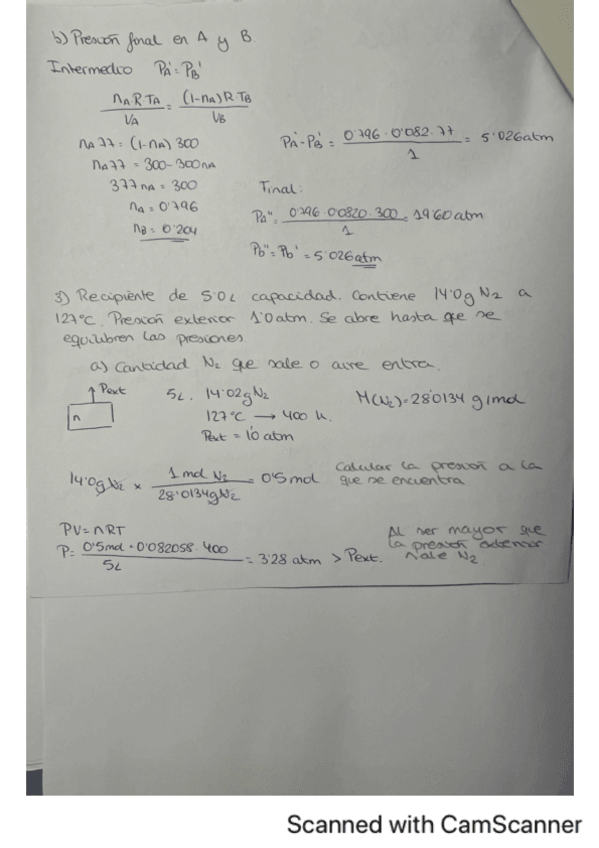 b) Presión final en A y B
Intermedio PA' = PB'
nA R·TA / VA = (1-nA) R TB / VB
nA 77 = (1-nA) 300
nA 77 = 300 - 300nA
377 nA = 300
nA = 0'796
nB = 0'204
PA' = PB' = 0'796 · 0'082 · 77 / 1 = 5'026 atm
Final:
Pa'' = 0'796 · 0'0820 · 300 / 1 = 19'60 atm
Pb'' = Pb' = 5'026 atm
3) Recipiente de 5'0 L capacidad. Contiene 14'0g N2 a
127°C. Presión exterior 1'0 atm. Se abre hasta que se
equilibren las presiones.
a) Cantidad N2 que sale o aire entra.
Pext
n
5L. 14'02g N2
127°C → 400 K.
Pext = 1'0 atm
M(N2) = 28'0134 g/mol
14'0g N2 × 1 mol N2 / 28'0134g N2 = 0'5 mol
Calcular la presión a la
que se encuentra
PV = nRT
P = 0'5mol · 0'082058 · 400 / 5L = 3'28 atm > Pext.
Al ser mayor que
la presión exterior
sale N2
Scanned with CamScanner